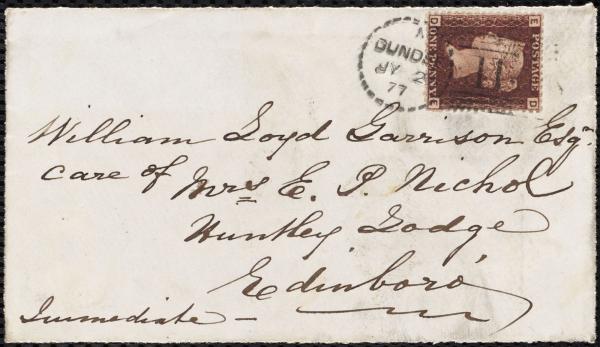 DUND
JY 2
77
11
POSTAGE
ONE PENNY
E D
D E
William Loyd Garrison Esqr.
care of Mrs E. P. Nichol
Huntley Lodge
Edinboro'
Immediate —